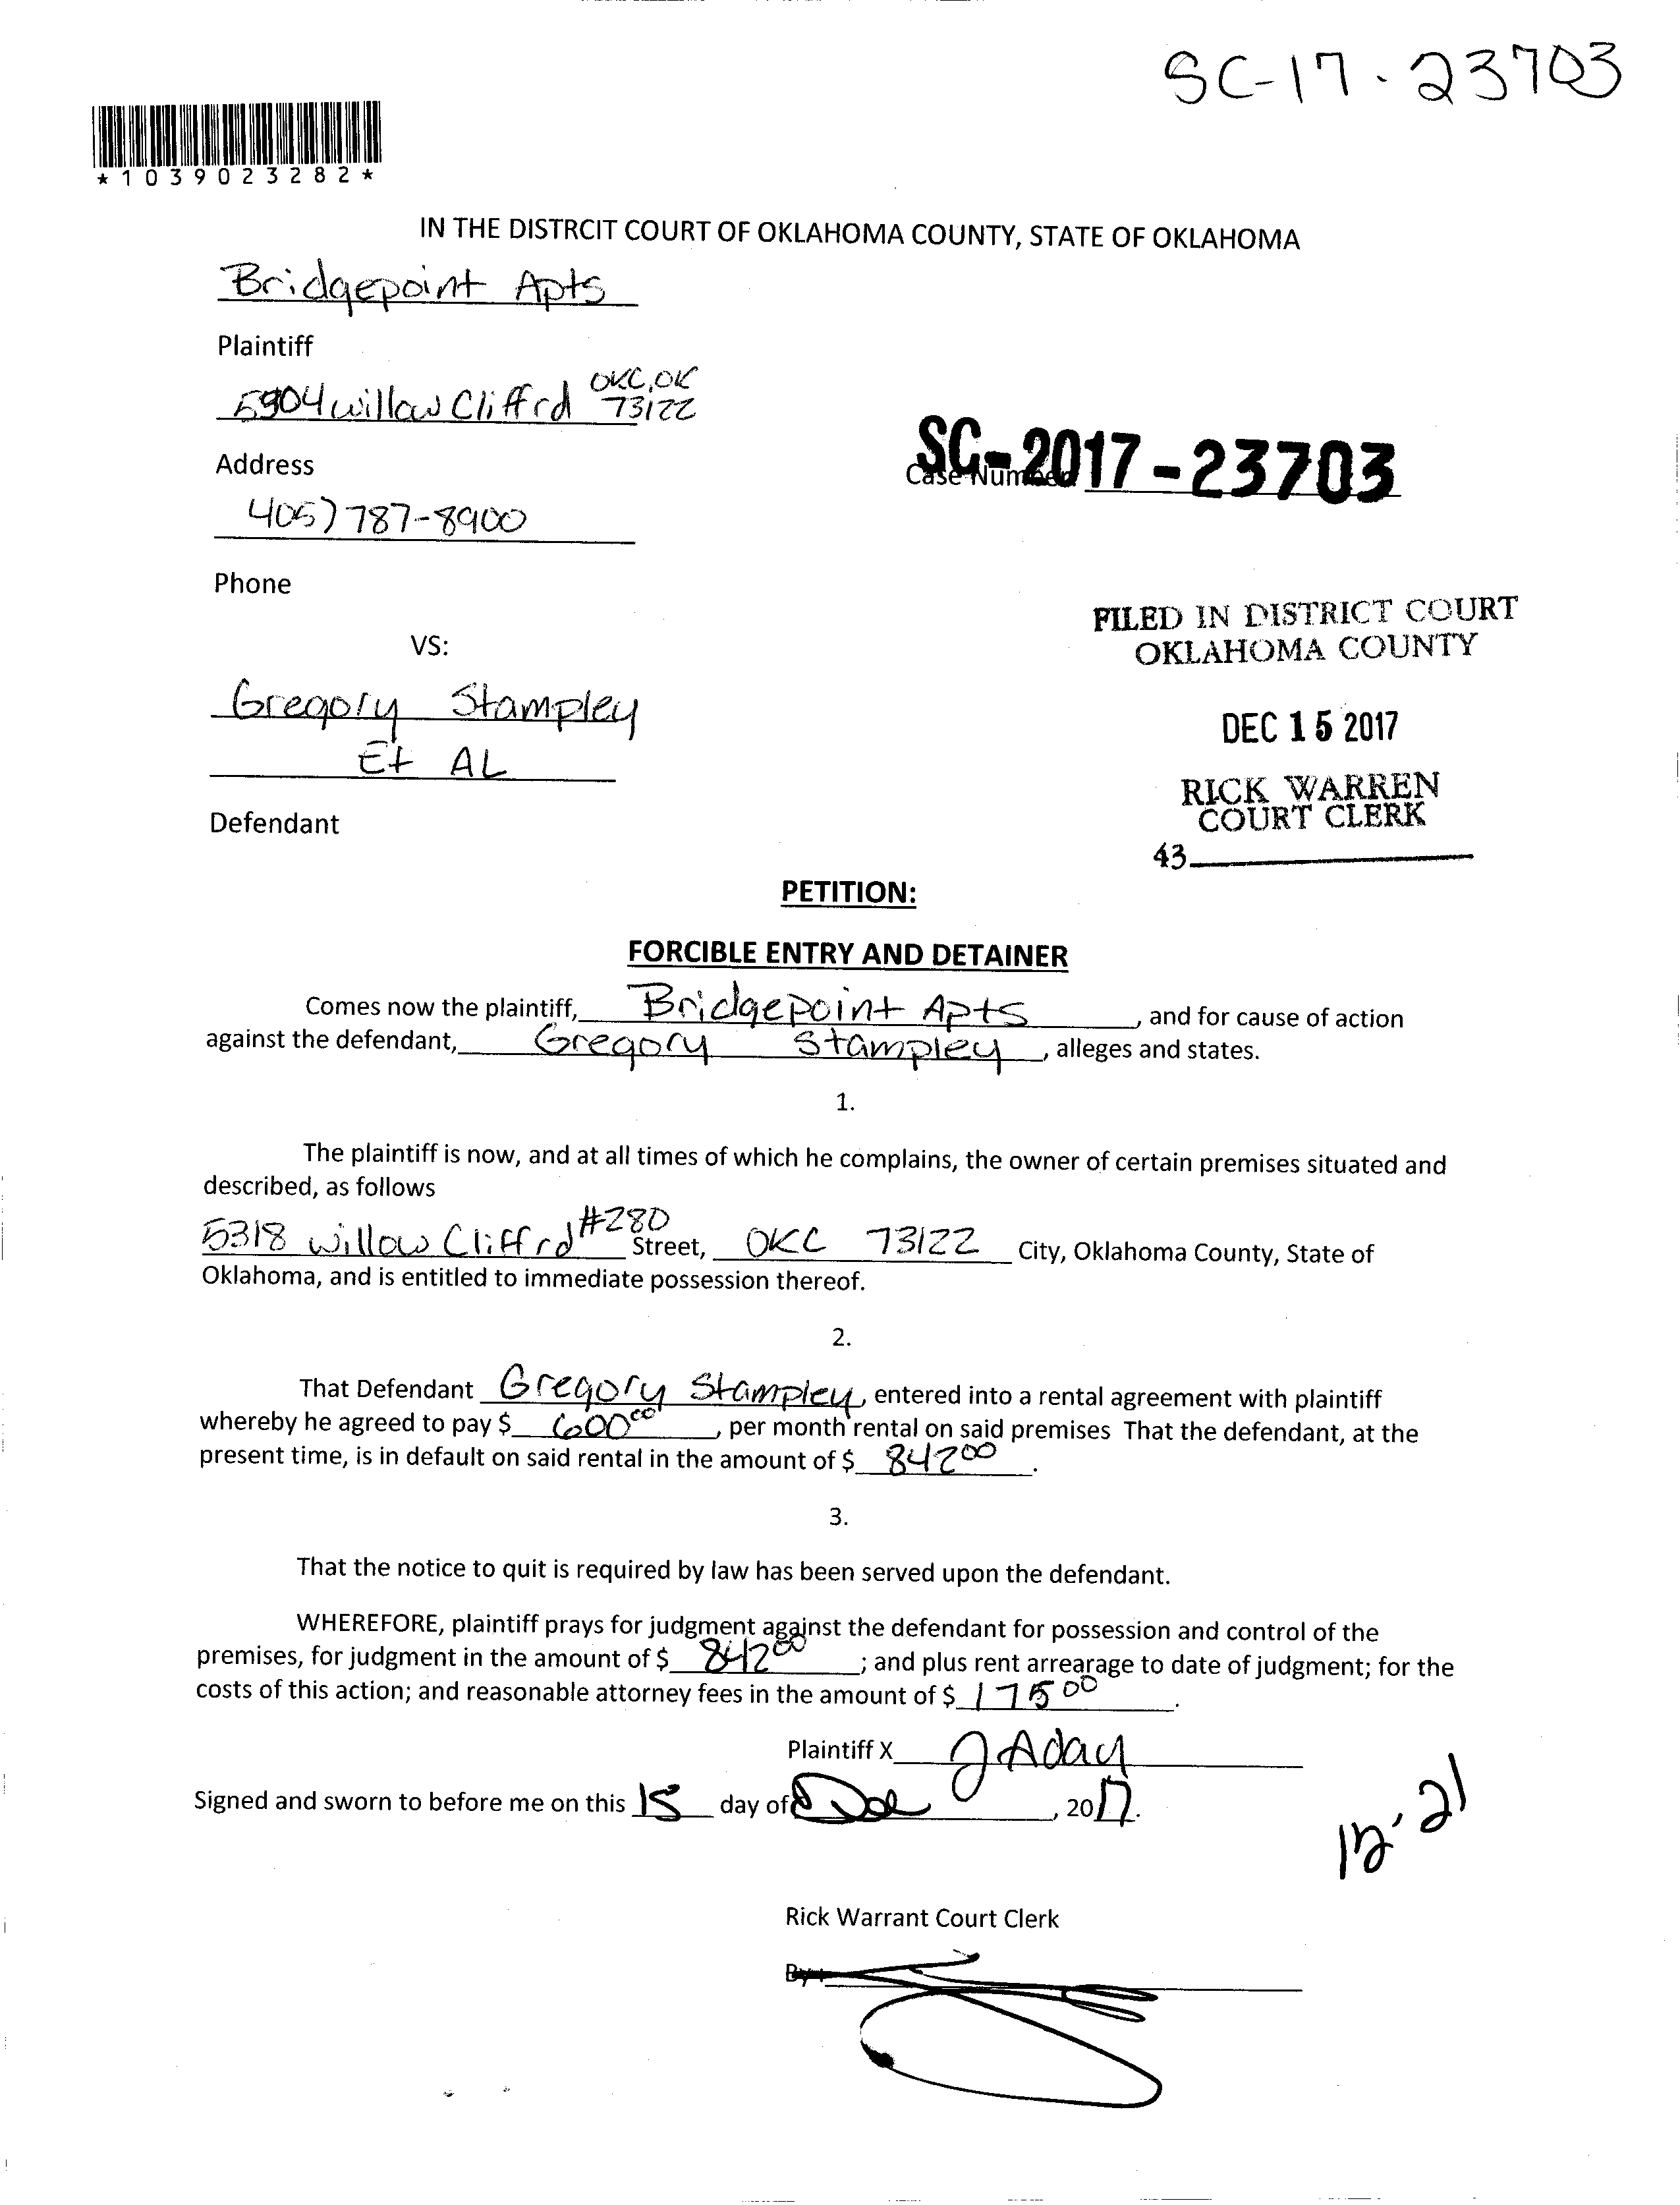 SC-17-23703
*1039023282*
IN THE DISTRCIT COURT OF OKLAHOMA COUNTY, STATE OF OKLAHOMA
Bridgepoint Apts
Plaintiff
5904 willow Cliff rd OKC, OK 73122
Address
SC-2017-23703
Case Number
405) 787-8900
Phone
FILED IN DISTRICT COURT
OKLAHOMA COUNTY
VS:
Gregory Stampley
Et AL
DEC 15 2017
RICK WARREN
COURT CLERK
Defendant
43
PETITION:
FORCIBLE ENTRY AND DETAINER
Comes now the plaintiff, Bridgepoint Apts, and for cause of action
against the defendant, Gregory Stampley, alleges and states.
1.
The plaintiff is now, and at all times of which he complains, the owner of certain premises situated and
described, as follows
5318 willow Cliff rd #280 Street, OKC 73122 City, Oklahoma County, State of
Oklahoma, and is entitled to immediate possession thereof.
2.
That Defendant Gregory Stampley, entered into a rental agreement with plaintiff
whereby he agreed to pay $ 600 00, per month rental on said premises That the defendant, at the
present time, is in default on said rental in the amount of $ 842 00.
3.
That the notice to quit is required by law has been served upon the defendant.
WHEREFORE, plaintiff prays for judgment against the defendant for possession and control of the
premises, for judgment in the amount of $ 842 00; and plus rent arrearage to date of judgment; for the
costs of this action; and reasonable attorney fees in the amount of $ 175 00.
Plaintiff X J Aday
Signed and sworn to before me on this 15 day of Dec, 2017.
12-21
Rick Warrant Court Clerk
By: